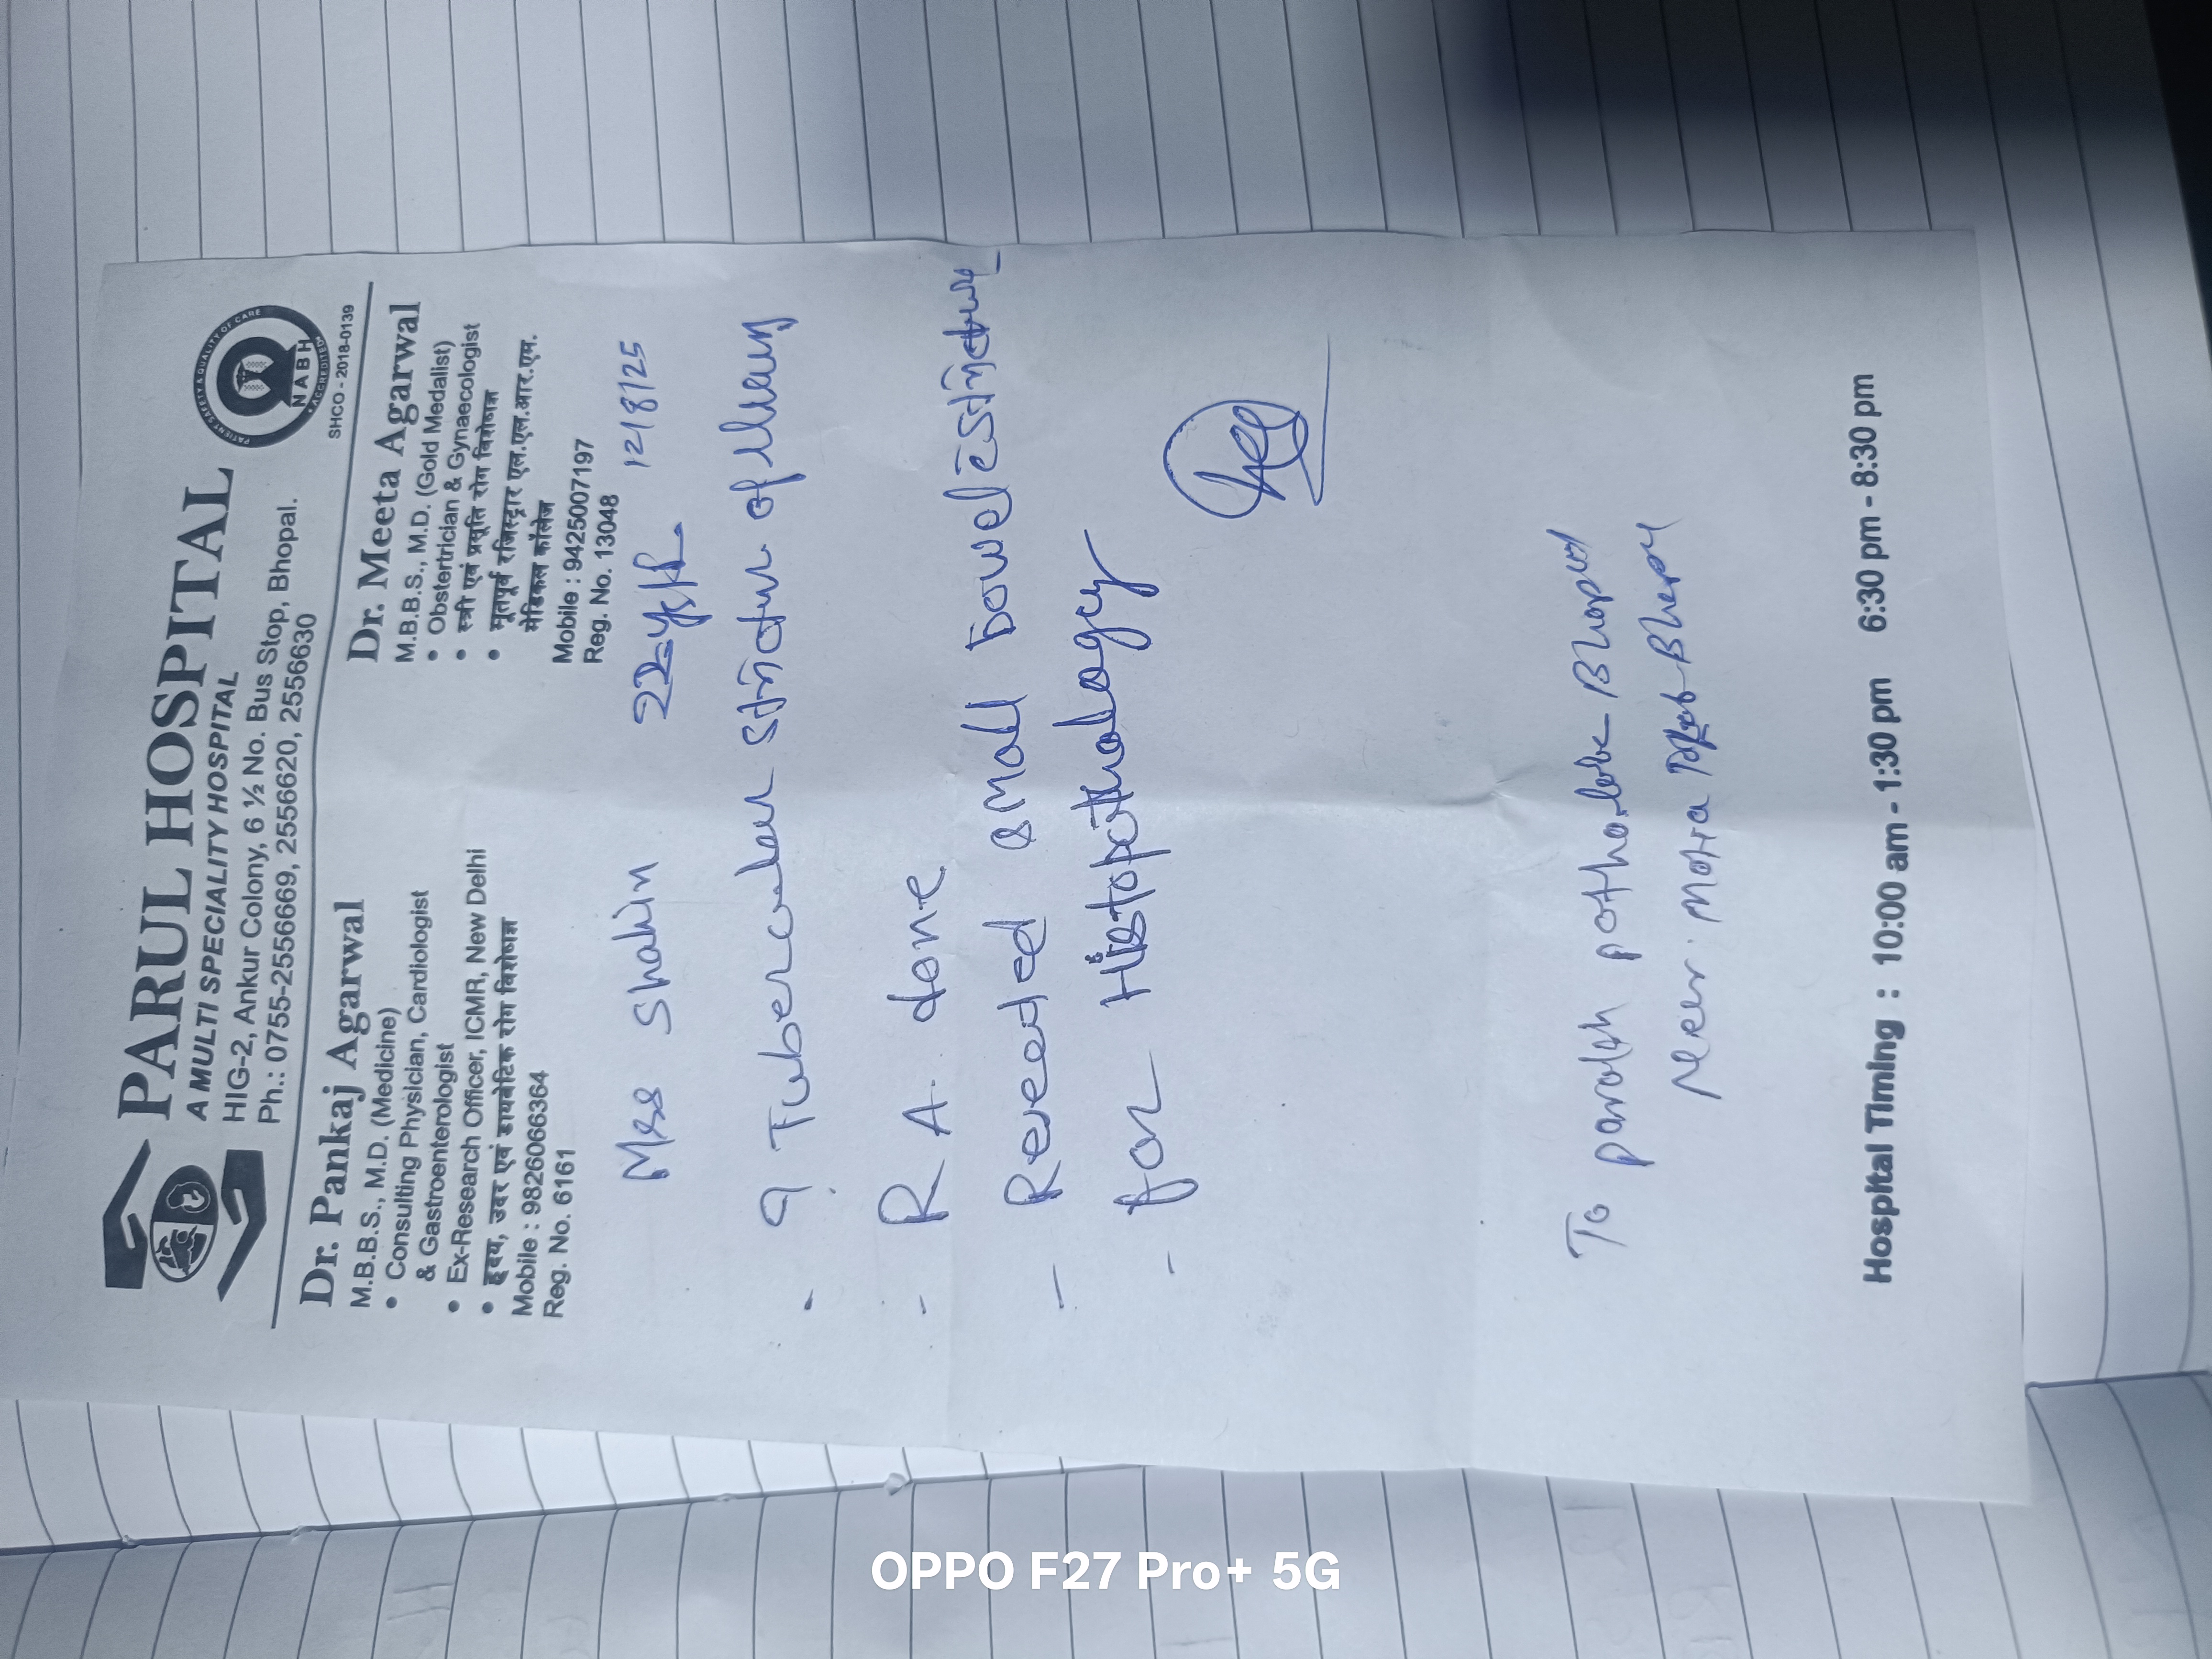 PARUL HOSPITAL
A MULTI SPECIALITY HOSPITAL
HIG-2, Ankur Colony, 6 ½ No. Bus Stop, Bhopal.
Ph.: 0755-2556669, 2556620, 2556630
PATIENT SAFETY & QUALITY OF CARE
NABH
ACCREDITED
SHCO - 2018-0139
Dr. Pankaj Agarwal
M.B.B.S., M.D. (Medicine)
• Consulting Physician, Cardiologist
& Gastroenterologist
• Ex-Research Officer, ICMR, New Delhi
• हृदय, उदर एवं डायबेटिक रोग विशेषज्ञ
Mobile : 9826066364
Reg. No. 6161
Dr. Meeta Agarwal
M.B.B.S., M.D. (Gold Medalist)
• Obstertrician & Gynaecologist
• स्त्री एवं प्रसूति रोग विशेषज्ञ
• भूतपूर्व रजिस्ट्रार एल.एल.आर.एम.
मेडिकल कॉलेज
Mobile : 9425007197
Reg. No. 13048
Mrs Shahin 22 12/8/25
? Tubercular stricture of
- R A done
- Resected small bowel stricture
- for Histopathology
To Bhopal
Hospital Timing : 10:00 am - 1:30 pm 6:30 pm - 8:30 pm
OPPO F27 Pro+ 5G